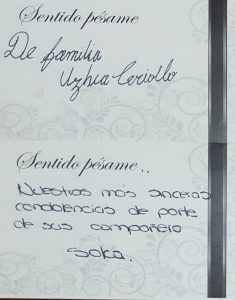 Sentido pésame
De familia
Uzhca Criollo
Sentido pésame..
Nuestras más sinceras
condolencias de parte
de sus compañero
Soka.